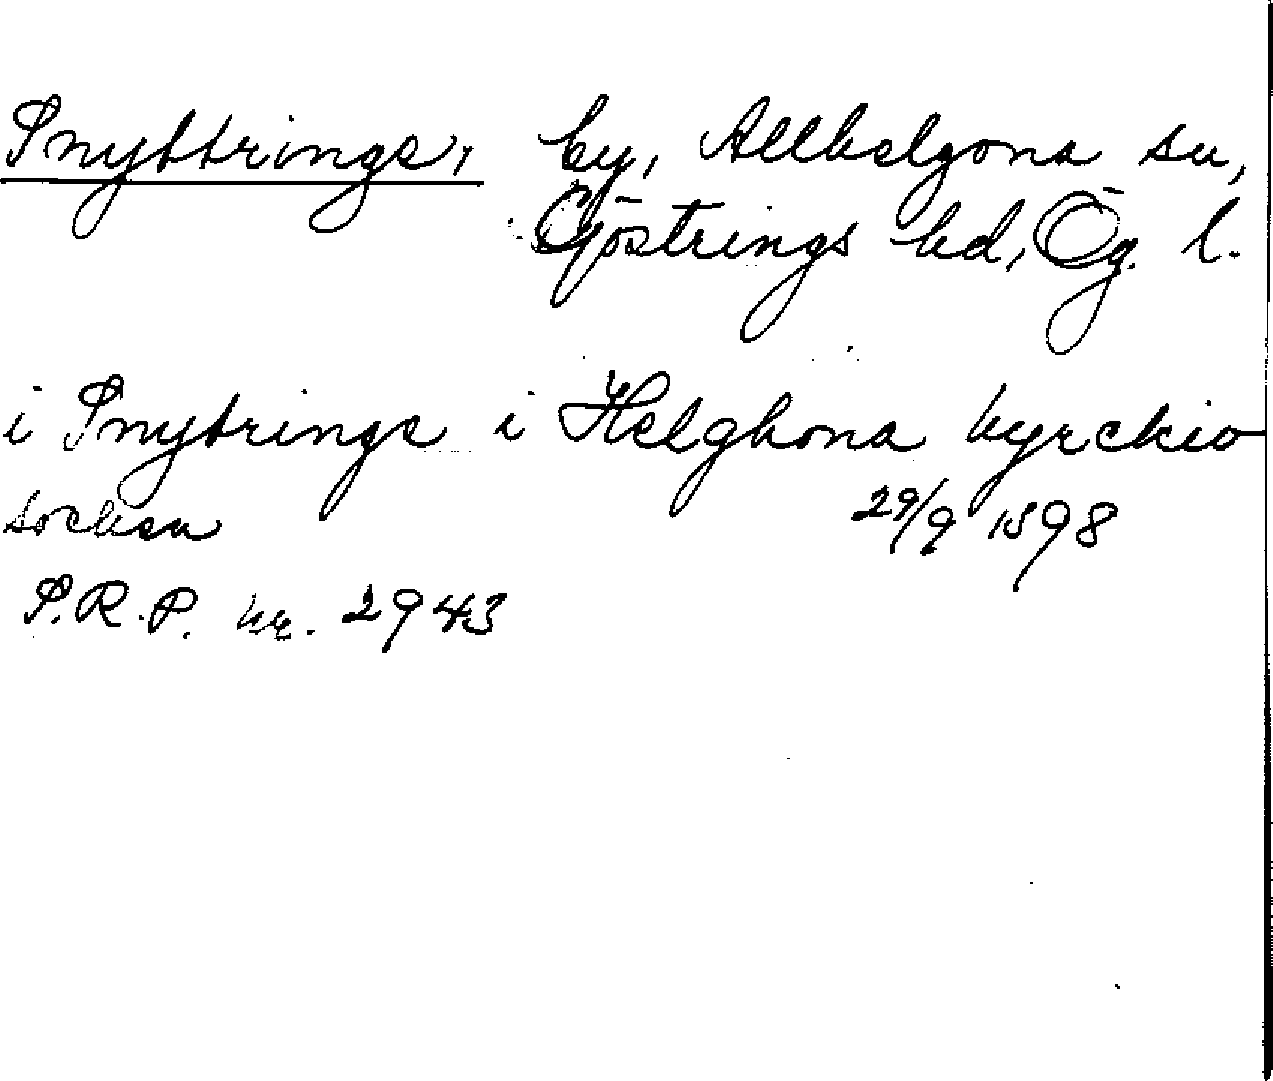 Snyttringe, by, Allhelgona sn,
Göstrings hd, Ög. l.
i Snytringe i Helghona kyrckio
socken 29/9 1598
S.R.P. nr. 2943